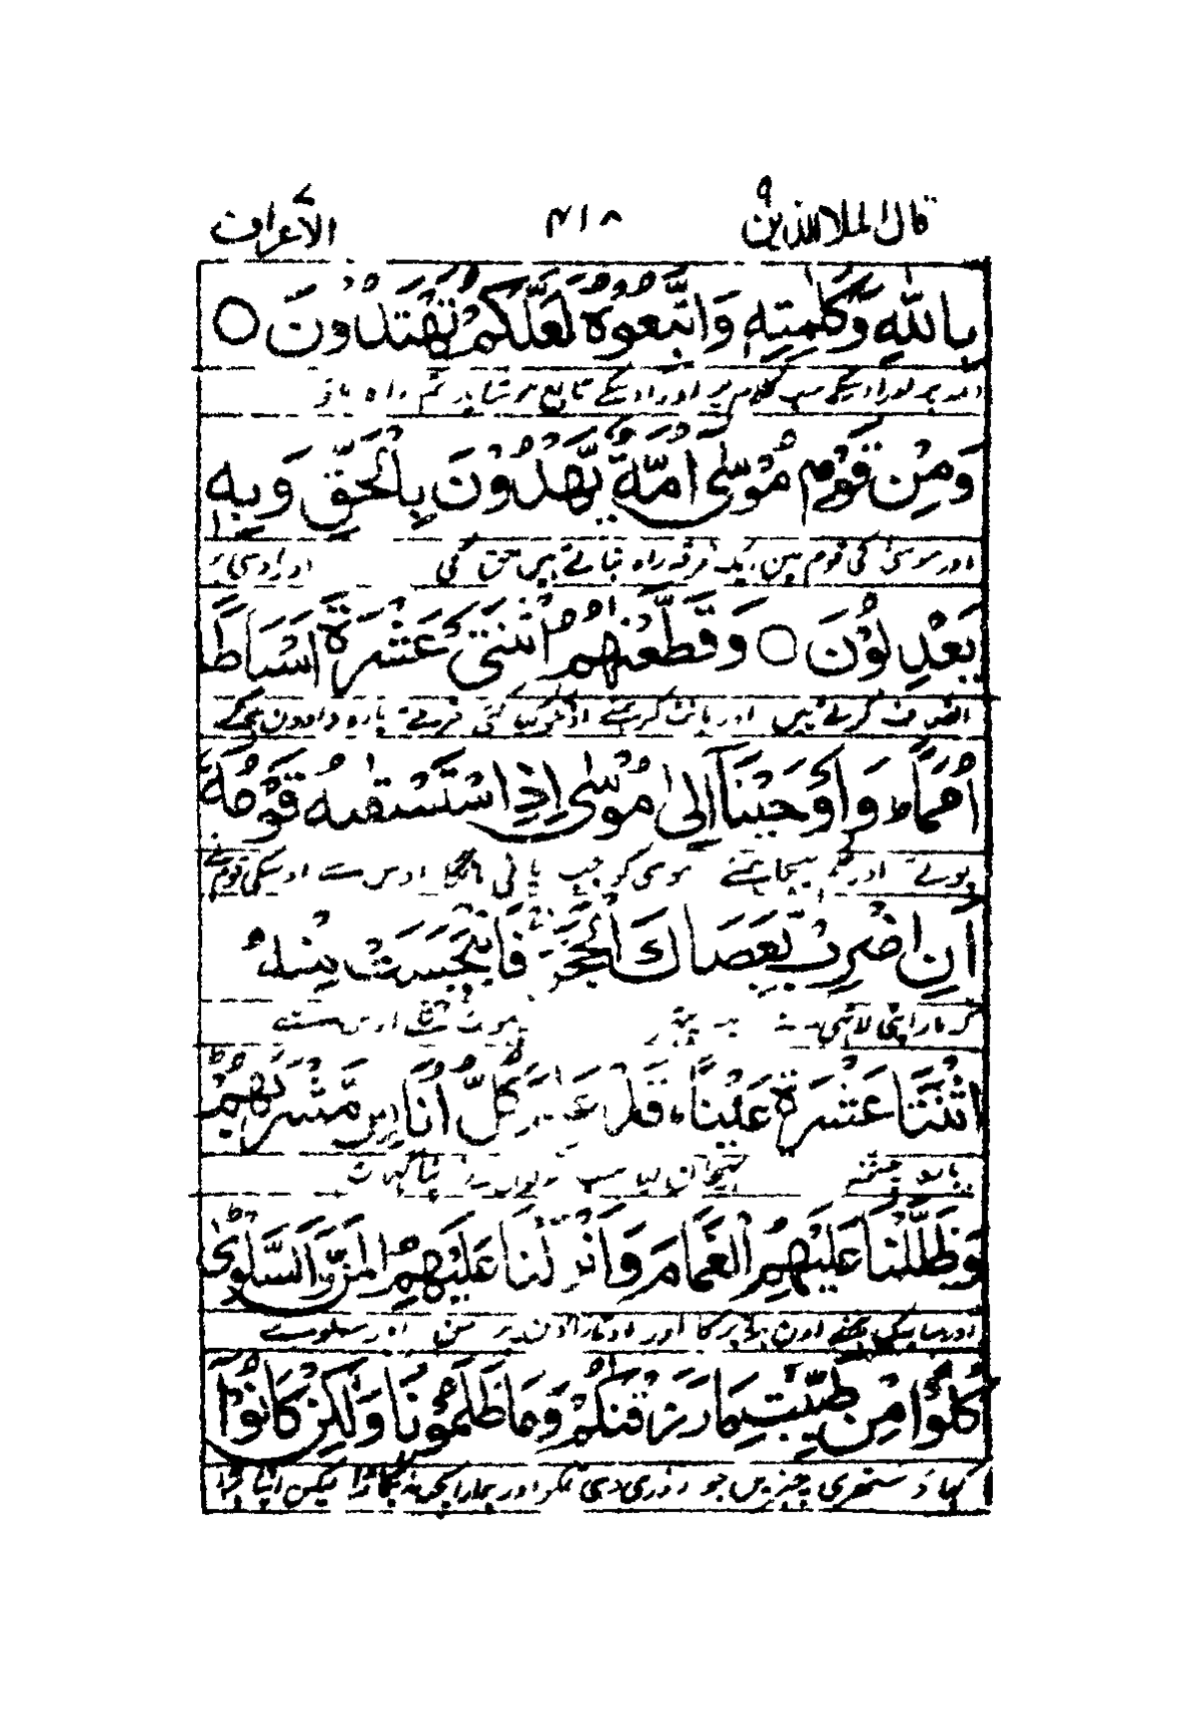 قال الملا الذين ۹ ۴۱۸ الاعراف ۷
بِاللّٰهِ وَكَلِمٰتِهٖ وَاتَّبِعُوْهُ لَعَلَّكُمْ تَهْتَدُوْنَ ○
پر اور اوسکے سب کلام پر اور اوسکے تابع ہو شاید تم راہ پاؤ
وَمِنْ قَوْمِ مُوْسٰى اُمَّةٌ يَّهْدُوْنَ بِالْحَقِّ وَبِهٖ
اور موسیٰ کی قوم مین ایک فرقہ راہ بتاتے ہیں حق کی اور اوسی پر
يَعْدِلُوْنَ ○ وَقَطَّعْنٰهُمُ اثْنَتَىْ عَشْرَةَ اَسْبَاطًا
انصاف کرتے ہیں اور بانٹ کر ہمنے اونکو کیا کئی فرقے بارہ دادون کے
اُمَمًا ؕ وَاَوْحَيْنَاۤ اِلٰى مُوْسٰۤى اِذِ اسْتَسْقٰىهُ قَوْمُهٗۤ
پوتے اور حکم بھیجا ہمنے موسی کو جب پانی مانگا اوس سے اوسکی قوم نے
اَنِ اضْرِبْ بِّعَصَاكَ الْحَجَرَ ۚ فَانْۢبَجَسَتْ مِنْهُ
کہ مار اپنی لاٹھی سے پتھر پھوٹ نکلے اوس سے
اثْنَتَا عَشْرَةَ عَيْنًا ؕ قَدْ عَلِمَ كُلُّ اُنَاسٍ مَّشْرَبَهُمْ ؕ
بارہ چشمے پہچان لیا سب لوگوں نے اپنا گھاٹ
وَظَلَّلْنَا عَلَيْهِمُ الْغَمَامَ وَاَنْزَلْنَا عَلَيْهِمُ الْمَنَّ وَالسَّلْوٰى ؕ
اور سایہ کیا ہمنے اون پر ابر کا اور اوتارا اون پر من اور سلوے
كُلُوْا مِنْ طَيِّبٰتِ مَا رَزَقْنٰكُمْ وَمَا ظَلَمُوْنَا وَلٰكِنْ كَانُوْۤا
کھاؤ ستھری چیزیں جو روزی دی تمکو اور ہمارا کچھ نہ بگاڑا لیکن اپنا برا